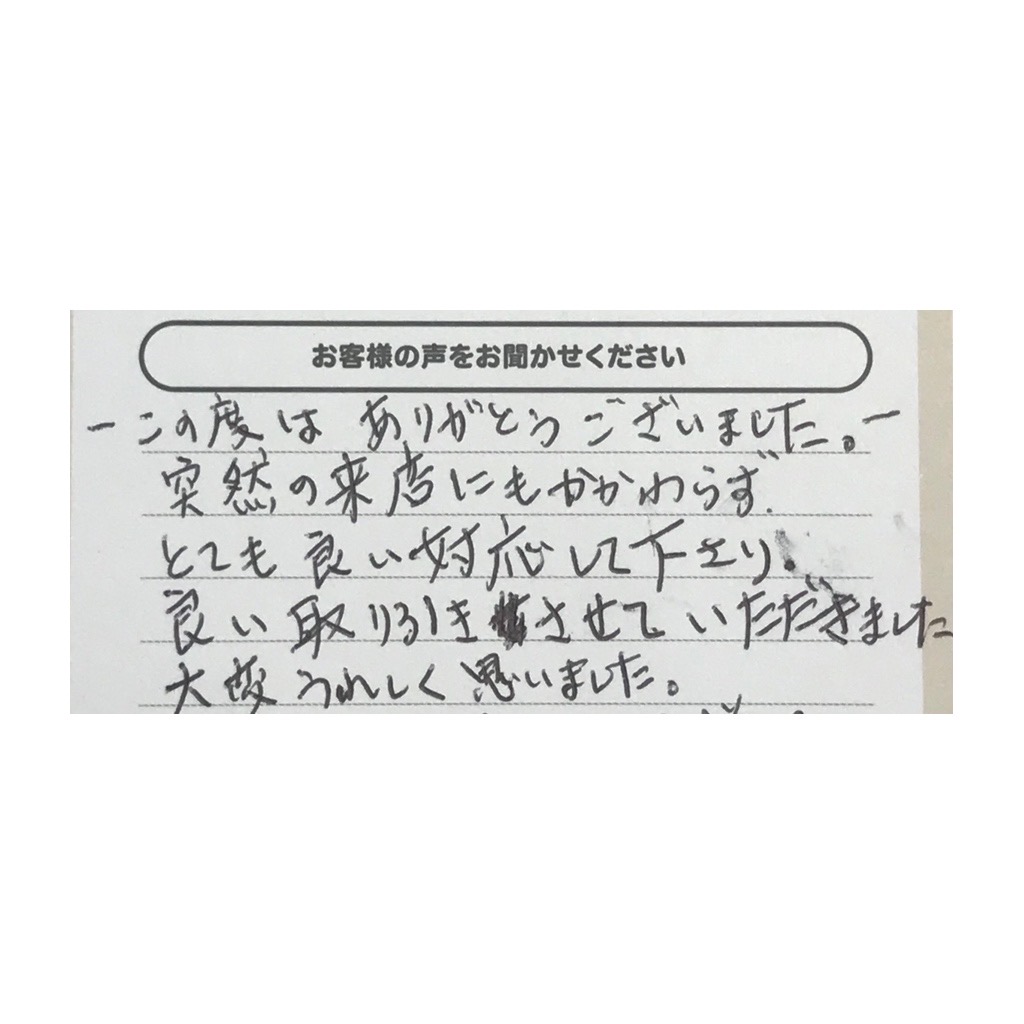 お客様の声をお聞かせください
ーこの度は ありがとうございました。ー
突然の来店にもかかわらず、
とても良い対応して下さり、
良い取り引きさせていただきました
大変うれしく思いました。